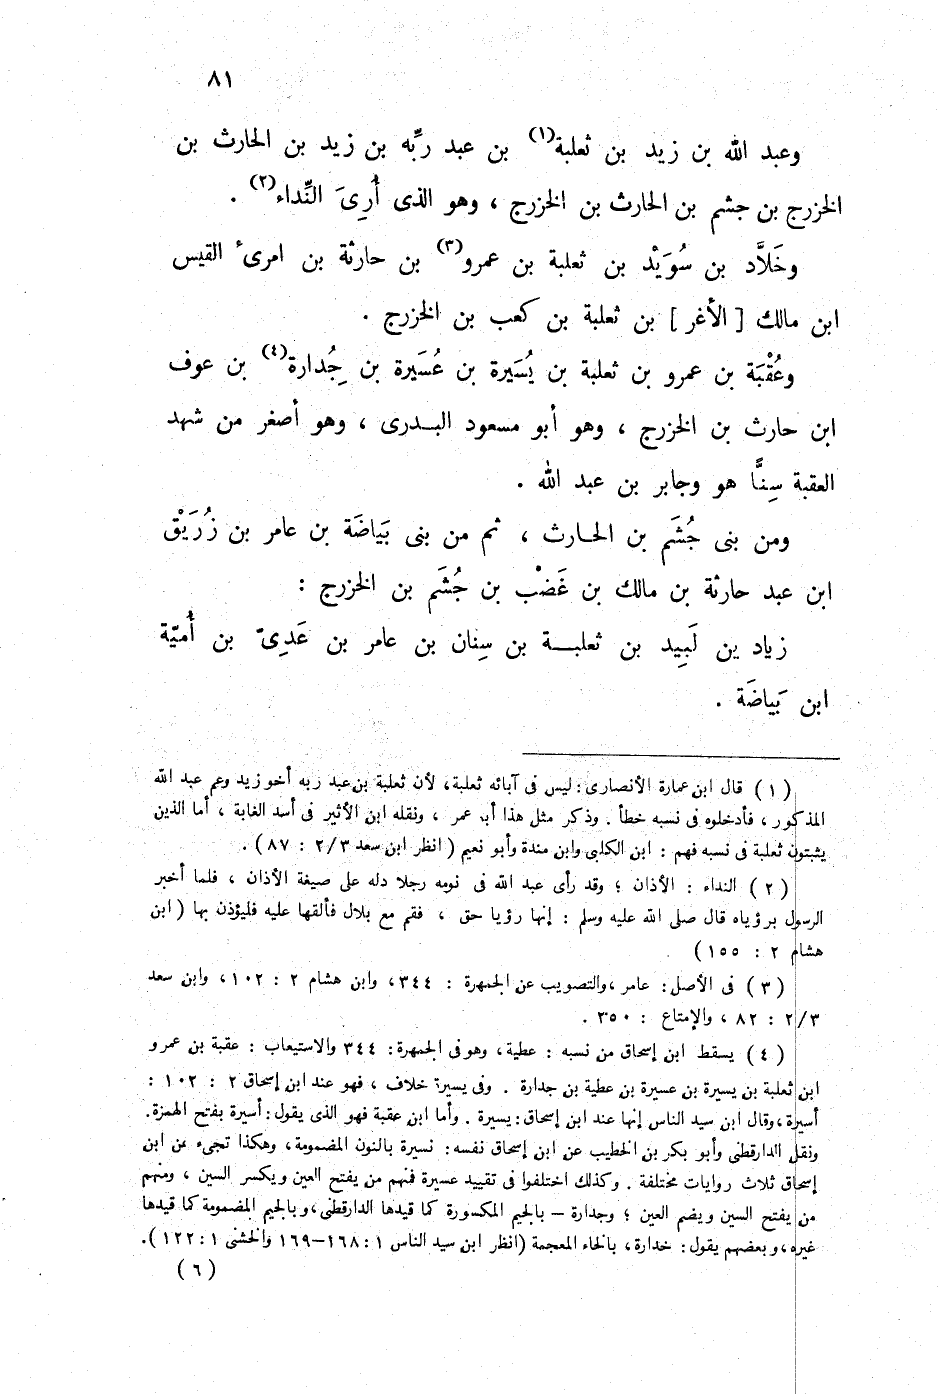 ٨١
وعبد الله بن زيد بن ثعلبة(١) بن عبد ربِّه بن زيد بن الحارث بن
الخزرج بن جشم بن الحارث بن الخزرج ، وهو الذى أُرِىَ النِّداء(٢) .
وخَلاَّد بن سُوَيْد بن ثعلبة بن عمرو(٣) بن حارثة بن امرئ القيس
ابن مالك [ الأغر ] بن ثعلبة بن كعب بن الخزرج .
وعُقْبَة بن عمرو بن ثعلبة بن يُسَيرة بن عُسَيرة بن جِدُارة(٤) بن عوف
ابن حارث بن الخزرج ، وهو أبو مسعود البـدرى ، وهو أصغر من شهد
العقبة سِنًّا هو وجابر بن عبد الله .
ومن بنى جُشَم بن الحـارث ، ثم من بنى بَيَاضَة بن عامر بن زُرَيْق
ابن عبد حارثة بن مالك بن غَضْب بن جُشَم بن الخزرج :
زياد بن لَبِيد بن ثعلبــة بن سِنان بن عامر بن عَدِىّ بن أُميّة
ابن بَيَاضَة .
(١) قال ابن عمارة الأنصارى : ليس فى آبائه ثعلبة، لأن ثعلبة بن عبد ربه أخو زيد وعم عبد الله
المذكور ، فأدخلوه فى نسبه خطأ . وذكر مثل هذا أبو عمر ، ونقله ابن الأثير فى أسد الغابة ، أما الذين
يثبتون ثعلبة فى نسبه فهم : ابن الكلبى وابن مندة وأبو نعيم ( انظر ابن سعد ٢/٣ : ٨٧ ) .
(٢) النداء : الأذان ؛ وقد رأى عبد الله فى نومه رجلا دله على صيغة الأذان ، فلما أخبر
الرسول برؤياه قال صلى الله عليه وسلم : إنها رؤيا حق ، فقم مع بلال فألقها عليه فليؤذن بها ( ابن
هشام ٢ : ١٥٥ )
(٣) فى الأصل : عامر ، والتصويب عن الجمهرة : ٣٤٤ ، وابن هشام ٢ : ١٠٢ ، وابن سعد
٢/٣ : ٨٢ ، والإمتاع : ٣٥٠ .
(٤) يسقط ابن إسحاق من نسبه : عطية ، وهو فى الجمهرة : ٣٤٤ والاستيعاب : عقبة بن عمرو
ابن ثعلبة بن يسيرة بن عسيرة بن عطية بن جدارة . وفى يسيرة خلاف ، فهو عند ابن إسحاق ٢ : ١٠٢ :
أسيرة ، وقال ابن سيد الناس إنها عند ابن إسحاق : يسيرة . وأما ابن عقبة فهو الذى يقول : أسيرة بفتح الهمزة.
ونقل الدارقطنى وأبو بكر بن الخطيب عن ابن إسحاق نفسه : نسيرة بالنون المضمومة ، وهكذا تجىء عن ابن
إسحاق ثلاث روايات مختلفة . وكذلك اختلفوا فى تقييد عسيرة فمنهم من يفتح العين ويكسر السين ، ومنهم
من يفتح السين ويضم العين ؛ وجدارة – بالجيم المكسورة كما قيدها الدارقطنى ، وبالجيم المضمومة كما قيدها
غيره ، وبعضهم يقول : خدارة ، بالخاء المعجمة ( انظر ابن سيد الناس ١ : ١٦٨–١٦٩ والخشنى ١ : ١٢٢ ) .
(٦)